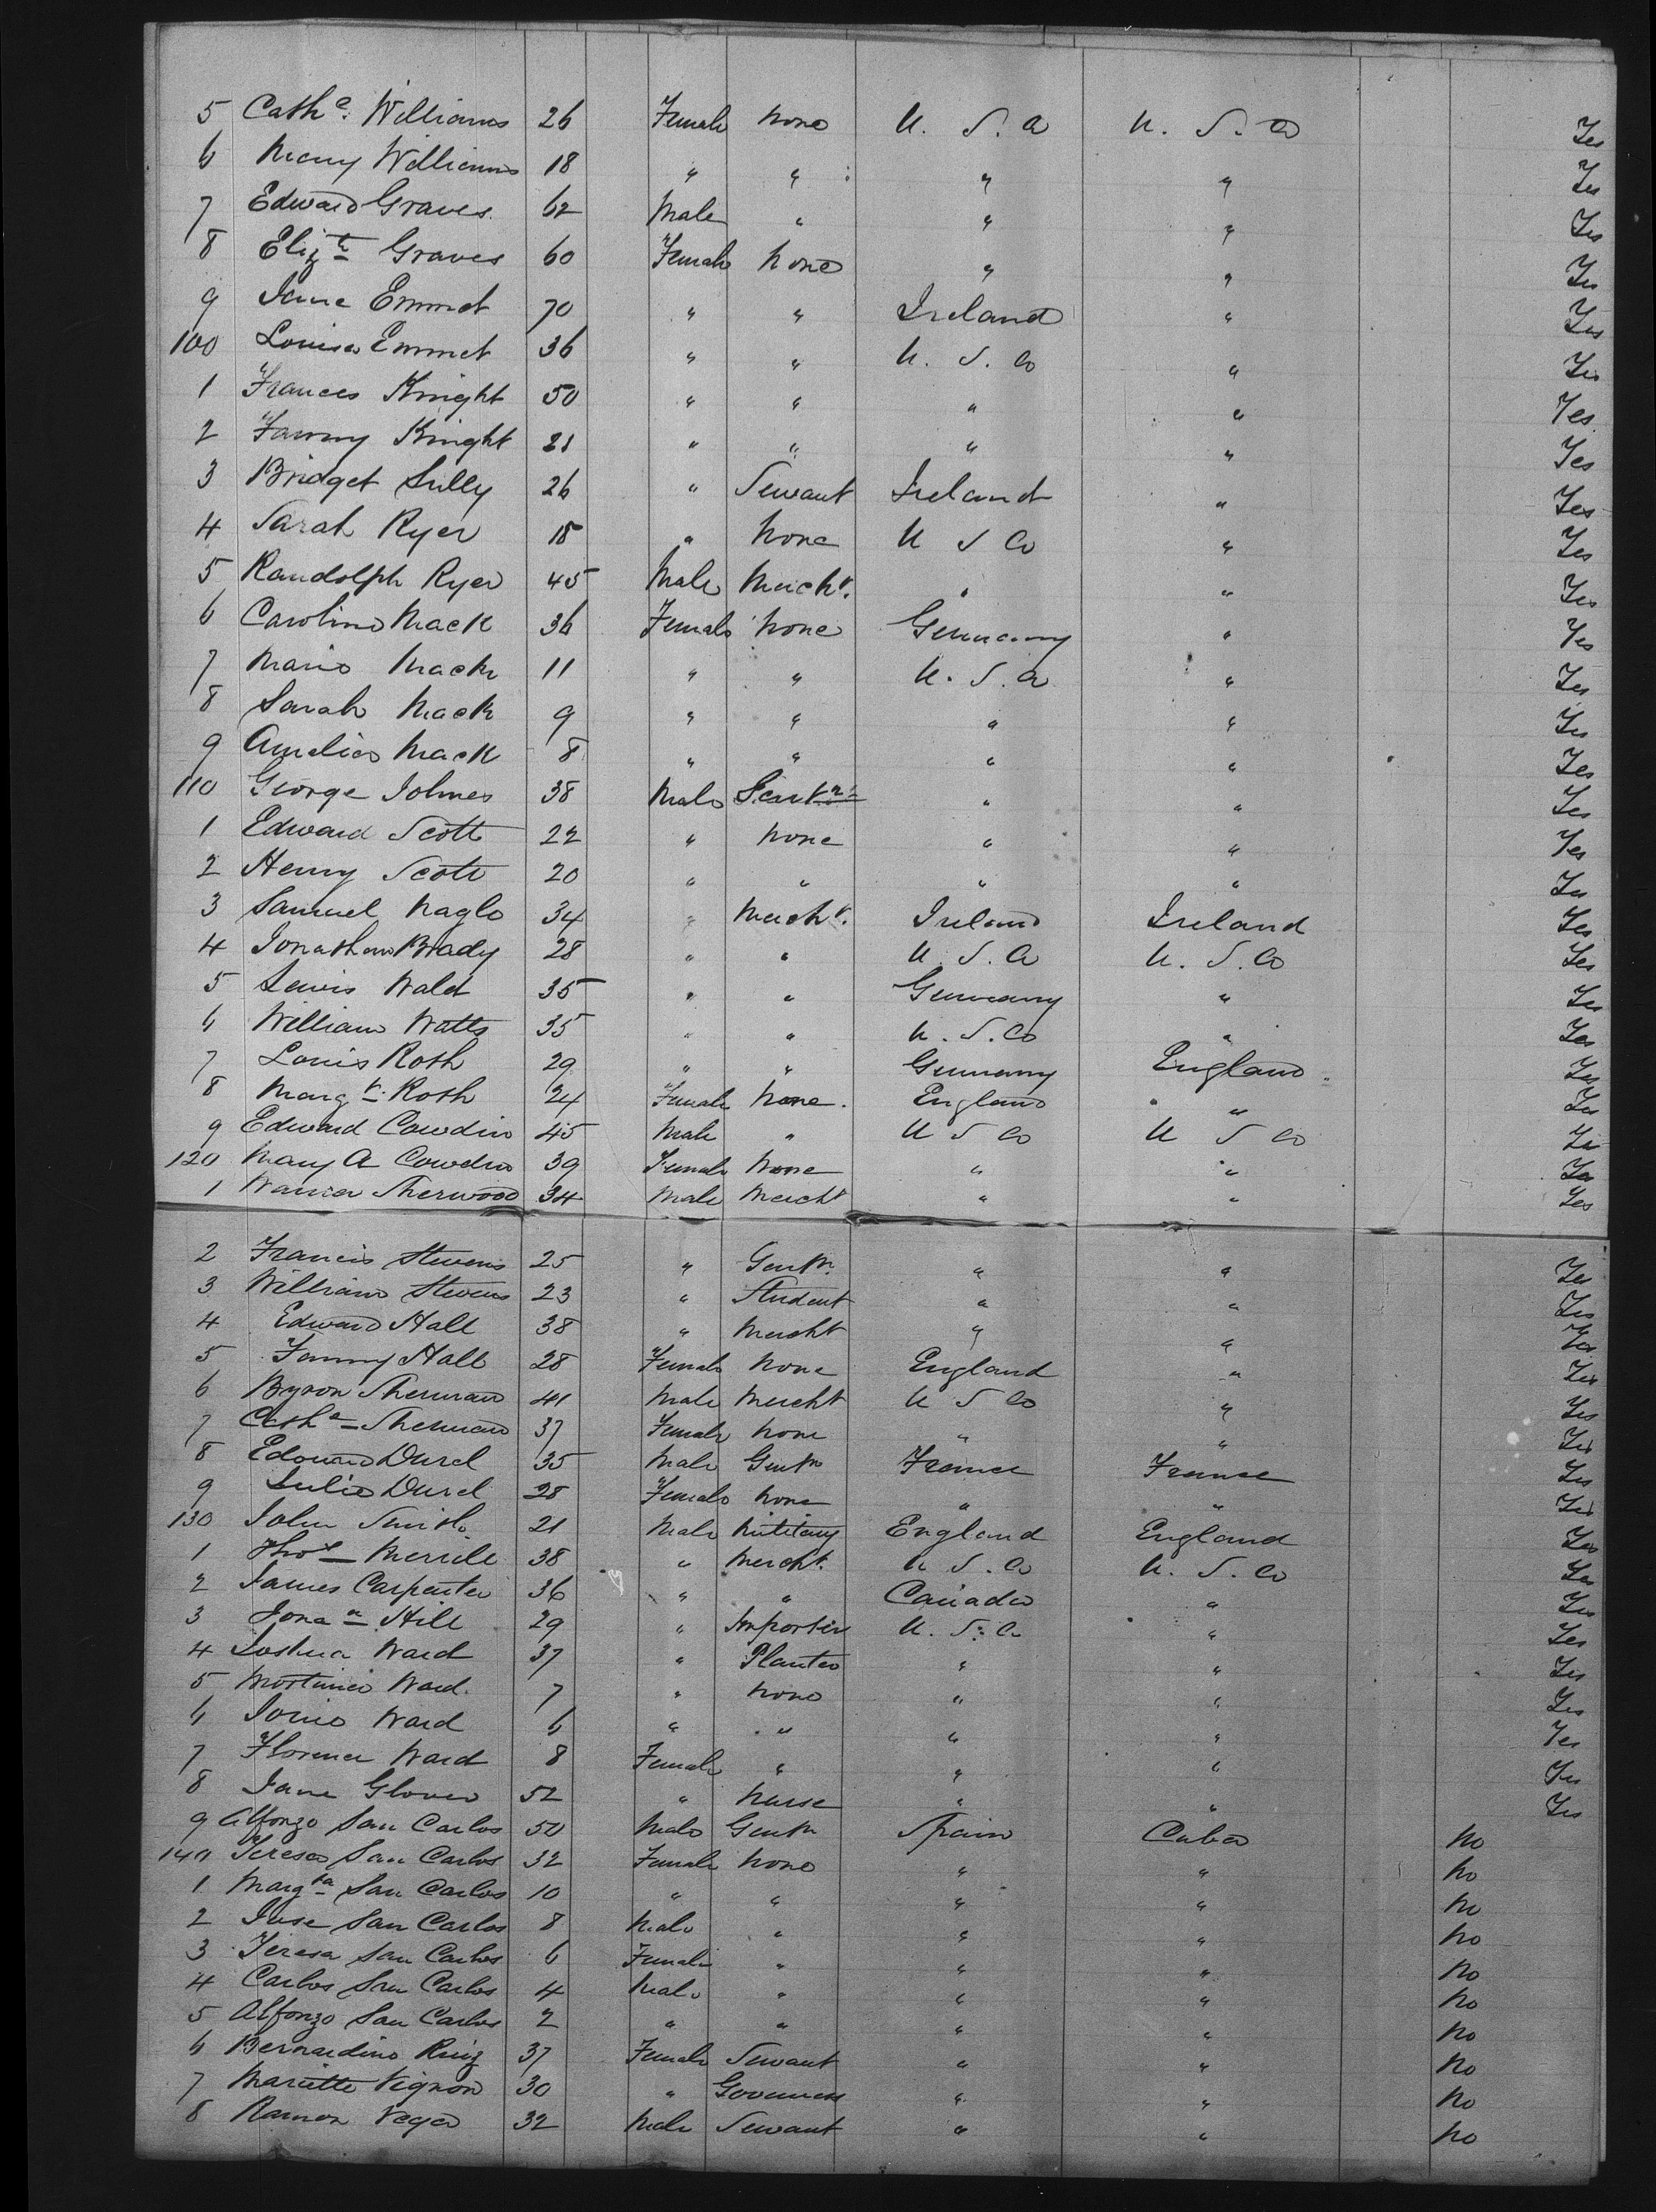 5 Cath a. Williams 26 Female None U. S. A U. S. A Yes
6 Mary Williams 18 " " " " Yes
7 Edward Graves 62 Male " " " Yes
8 Eliz th Graves 60 Female None " " Yes
9 Jane Emmet 70 " " Ireland " Yes
100 Louisa Emmet 36 " " U. S. A " Yes
1 Frances Knight 50 " " " " Yes
2 Fanny Knight 21 " " " " Yes
3 Bridget Lully 26 " Servant Ireland " Yes
4 Sarah Ryer 18 " None U S A " Yes
5 Randolph Ryer 45 Male Mercht. " " Yes
6 Caroline Mack 36 Female None Germany " Yes
7 Marie Mack 11 " " U. S. A " Yes
8 Sarah Mack 9 " " " " Yes
9 Amelia Mack 8 " " " " Yes
110 George Holmes 38 Male " " Yes
1 Edward Scott 22 " None " " Yes
2 Henry Scott 20 " " " " Yes
3 Samuel Nagle 34 " Mercht. Ireland Ireland Yes
4 Jonathan Brady 28 " " U. S. A U. S. A Yes
5 Lewis Wald 35 " " Germany " Yes
6 William Watts 35 " " U. S. A " Yes
7 Louis Roth 29 " " Germany England Yes
8 Marg t. Roth 24 Female None. England " Yes
9 Edward Cowdin 45 Male " U S A U S A Yes
120 Mary A Cowdin 39 Female None " " Yes
1 Warren Sherwood 34 Male Mercht " " Yes
2 Francis Stevens 25 " Gentn. " " Yes
3 William Stevens 23 " Student " " Yes
4 Edward Hall 38 " Mercht " " Yes
5 Fanny Hall 28 Female None England " Yes
6 Byron Sherman 41 Male Mercht U S A " Yes
7 Cath a Sherman 37 Female None " " Yes
8 Edouard Durel 35 Male Gentn France France Yes
9 Julie Durel 28 Female None " " Yes
130 John Smith 21 Male Military England England Yes
1 Thos Merrill 38 " Mercht. U S. A U. S. A Yes
2 James Carpenter 36 " " Canada " Yes
3 Jona n Hill 29 " Importer U. S. A " Yes
4 Joshua Ward 37 " Planter " " Yes
5 Mortimer Ward 7 " None " " Yes
6 Ward 6 " " " " Yes
7 Florence Ward 8 Female " " " Yes
8 Jane Glover 52 " Nurse " " Yes
9 Alfonzo San Carlos 50 Male Gentn Spain Cuba No
140 Teresa San Carlos 32 Female None " " No
1 Marg ta San Carlos 10 " " " " No
2 Jose San Carlos 8 Male " " " No
3 Teresa San Carlos 6 Female " " " No
4 Carlos San Carlos 4 Male " " " No
5 Alfonzo San Carlos 2 " " " " No
6 Bernardino Ruiz 37 Female Servant " " No
7 Mariette Vignon 30 " Governess " " No
8 Ramon Vega 32 Male Servant " " No